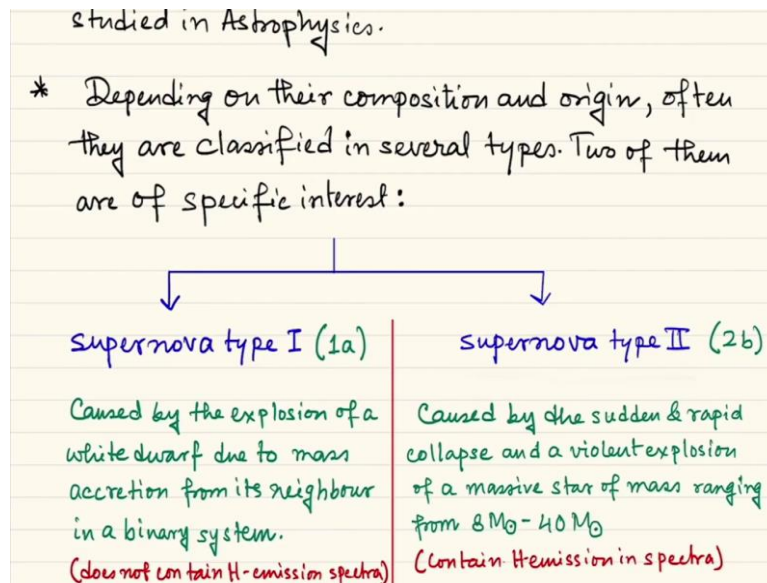 studied in Astrophysics.
* Depending on their composition and origin, often
they are classified in several types. Two of them
are of specific interest:
supernova type I (1a)
Caused by the explosion of a
white dwarf due to mass
accretion from its neighbour
in a binary system.
(does not contain H-emission spectra)
supernova type II (2b)
Caused by the sudden & rapid
collapse and a violent explosion
of a massive star of mass ranging
from 8M⊙ - 40M⊙
(Contain H-emission in spectra)